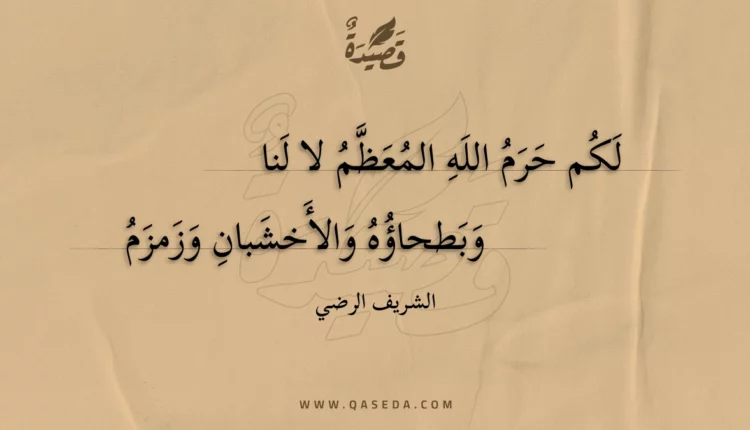 قَصِيدَةٌ
لَكُم حَرَمُ اللَهِ المُعَظَّمُ لا لَنا
وَبَطحاؤُهُ وَالأَخشَبانِ وَزَمزَمُ
الشريف الرضي
WWW.QASEDA.COM